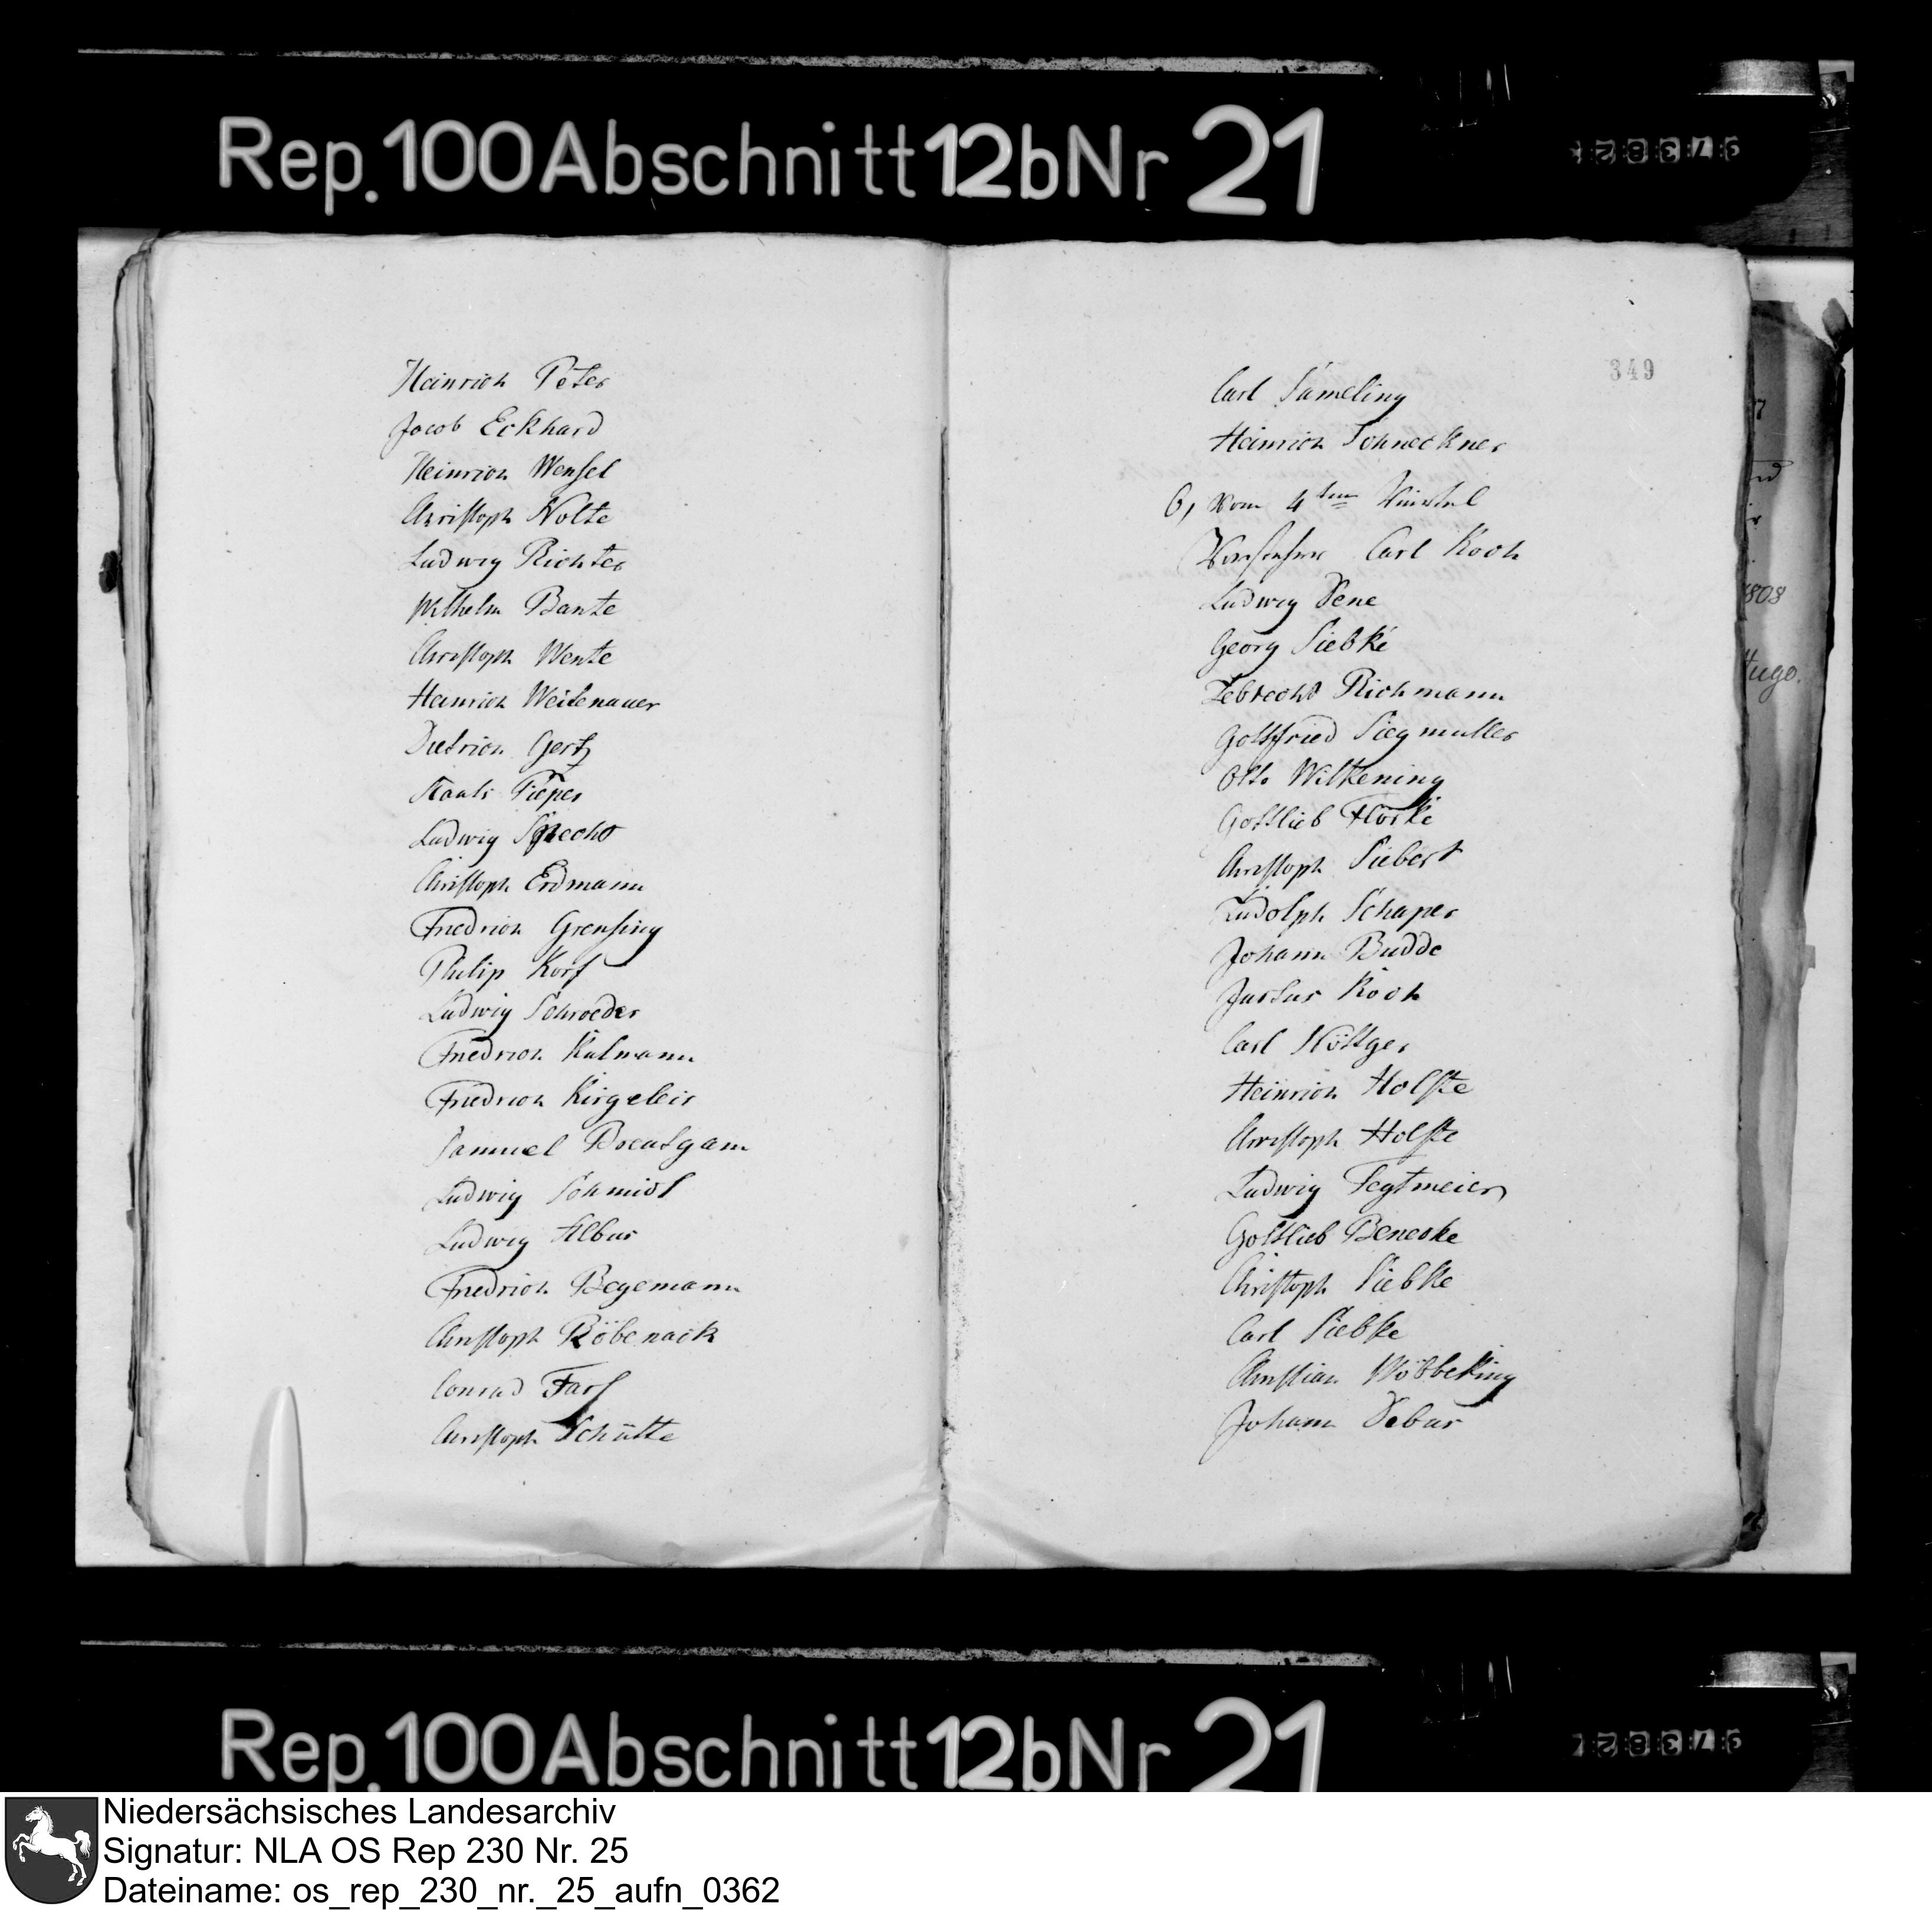 Rep. 100 Abschnitt 12b Nr 21
Heinrich Peter
Jacob Eckhard
Heinrich Wensel
Christoph Nolte
Ludwig Richter
Wilhelm Bante
Christoph Wente
Heinrich Weitenauer
Dietrich Gertz
Staats Pieper
Ludwig Specht
Christoph Erdmann
Friedrich Grensing
Philip Korf
Ludwig Schroeder
Friedrich Kulmann
Friedrich Kirgeleis
Samuel
Ludwig Schmidt
Ludwig Albus
Friedrich Begemann
Christoph Röbenack
Conrad
Christoph Schütte
349
Carl Sameling
Heinrich Schneckner
6, Vom 4ten Viertel
Vorsteher Carl Koch
Ludwig Dene
Georg Siebke
Lebrecht Richmann
Gottfried Siegmuller
Otto Wilkening
Gottlieb Flörke
Christoph Siebert
Rudolph Schaper
Johann Budde
Justus Koch
Carl Nöltger
Heinrich Holste
Christoph Holste
Ludwig Tegtmeier
Gottlieb Beneke
Christoph Siebke
Carl Siebke
Christian Wöbbeking
Johann Debus
1808
Hugo.
Rep. 100 Abschnitt 12b Nr 21
Niedersächsisches Landesarchiv
Signatur: NLA OS Rep 230 Nr. 25
Dateiname: os_rep_230_nr._25_aufn_0362